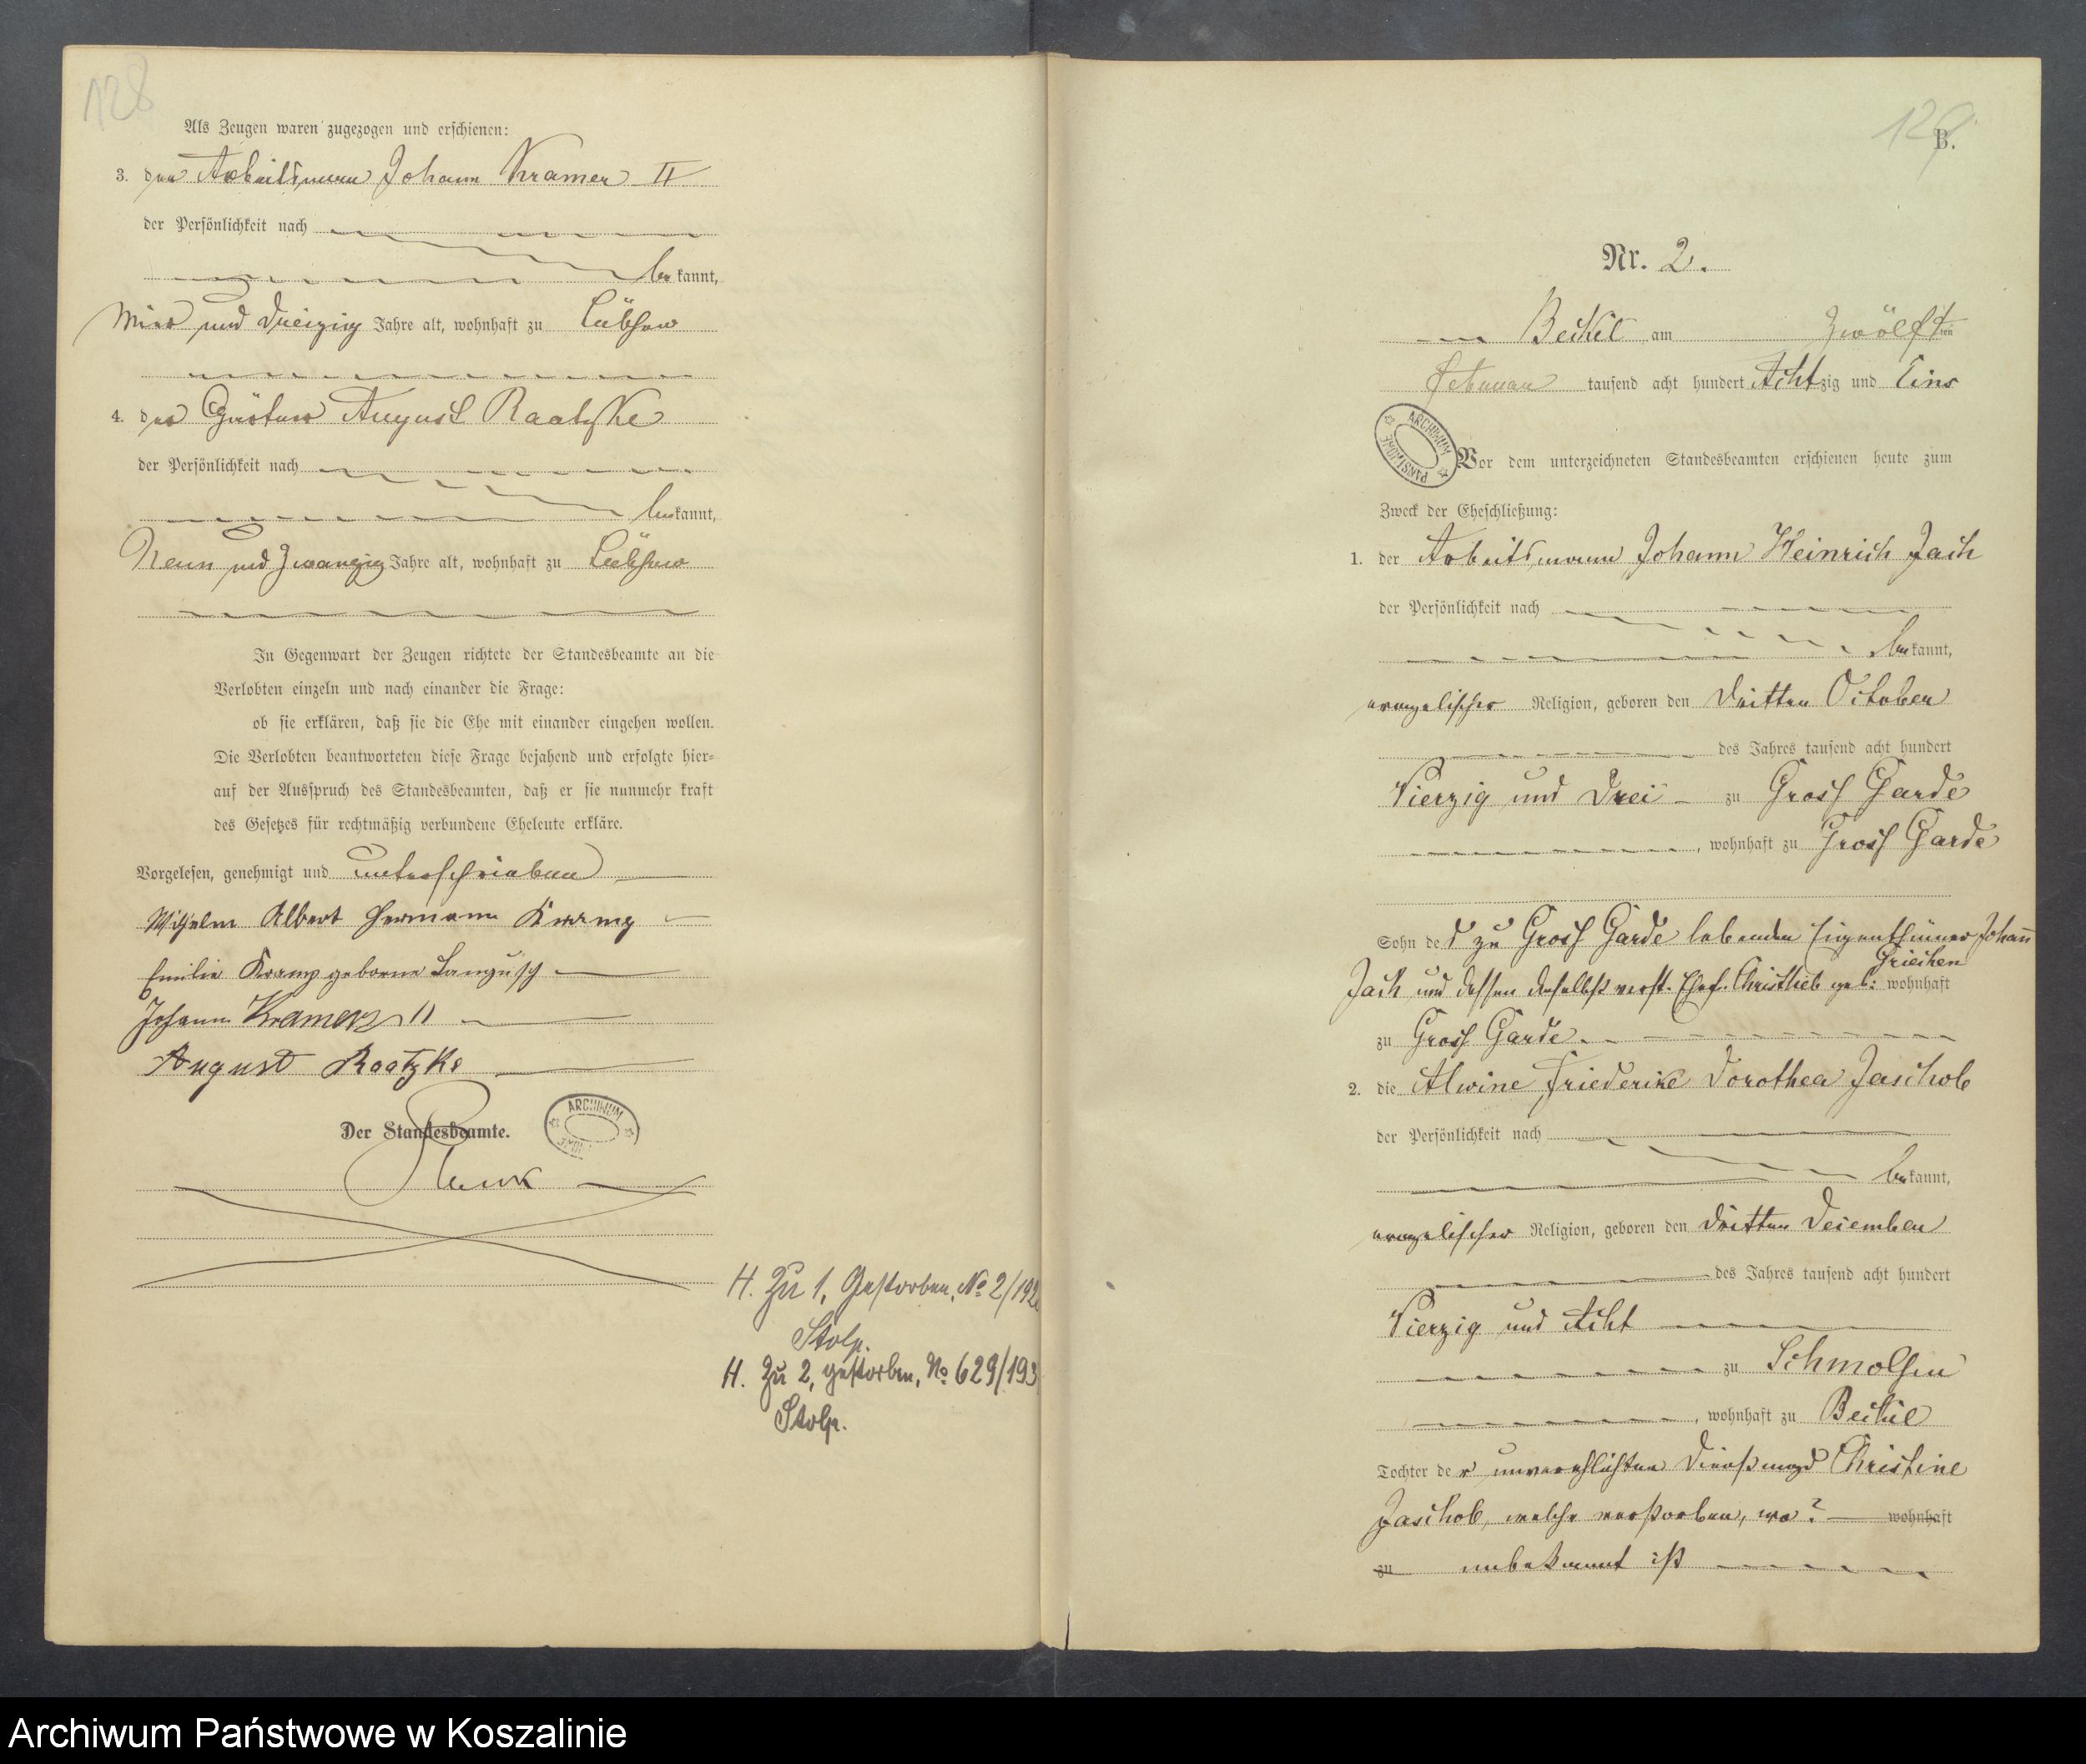 128
Als Zeugen waren zugezogen und erschienen:
3. der Arbeitsmann Johann Kramer II
der Persönlichkeit nach
be kannt,
und dreizig Jahre alt, wohnhaft zu Lübsow
4. der Gustav August Raatzke
der Persönlichkeit nach
be kannt,
Neun und Zwanzig Jahre alt, wohnhaft zu Lübsow
In Gegenwart der Zeugen richtete der Standesbeamte an die
Verlobten einzeln und nach einander die Frage:
ob sie erklären, daß sie die Ehe mit einander eingehen wollen.
Die Verlobten beantworteten diese Frage bejahend und erfolgte hier-
auf der Ausspruch des Standesbeamten, daß er sie nunmehr kraft
des Gesetzes für rechtmäßig verbundene Eheleute erkläre.
Vorgelesen, genehmigt und unterschrieben
Wilhelm Albert Hermann
Emilie Kramp geborene
Johann Kramer II
August Raatzke
Der Standesbeamte.
ARCHIWUM
H. Zu 1, Gestorben, No 2/192
Stolp.
H. Zu 2, gestorben, No 629/193
Stolp.
129
B.
Nr. 2.
Beckel am Zwölften
Februar tausend acht hundert Achtzig und Eins
ARCHIWUM PAŃSTWOWE
Vor dem unterzeichneten Standesbeamten erschienen heute zum
Zweck der Eheschließung:
1. der Arbeitsmann Johann Heinrich Jach
der Persönlichkeit nach
be kannt,
evangelischer Religion, geboren den dritten October
des Jahres tausend acht hundert
Vierzig und Drei zu Gross Garde
, wohnhaft zu Gross Garde
Sohn des zu Gross Garde lebenden Eigenthümer Johann
Griechen
Jach und dessen daselbst verst. Ehef. Christlieb geb: wohnhaft
zu Gross Garde.
2. die Alwine Friederike Dorothea Jaschob
der Persönlichkeit nach
be kannt,
evangelischer Religion, geboren den dritten December
des Jahres tausend acht hundert
Vierzig und Acht
zu Schmolsin
, wohnhaft zu Beckel
Tochter der unverehlichten Dienstmagd Christine
Jaschob, welche verstorben, wo? wohnhaft
zu unbekannt ist
Archiwum Państwowe w Koszalinie